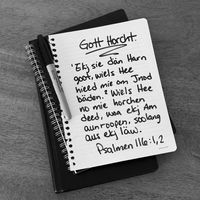 Gott Horcht.
'Ekj sie dän Harn
goot, wiels Hee
hieed mie om Jnod
bäden. ² Wiels Hee
no mie horchen
deed, woa ekj Am
aunroopen, soolang
aus ekj läw.
Psalmen 116:1,2